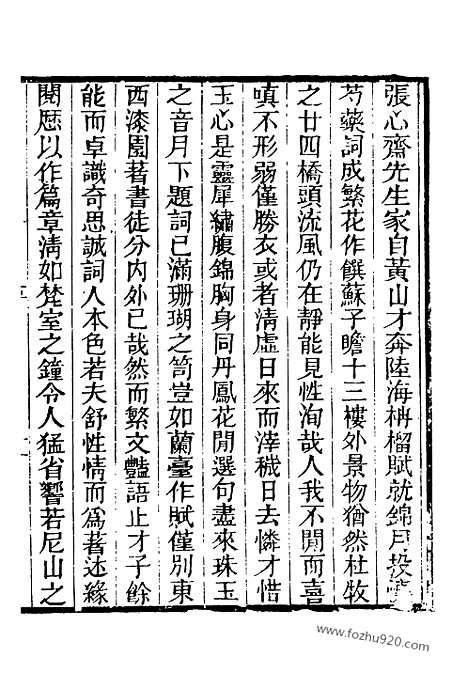 張心齋先生家自黃山才奔陸海柟榴賦就錦月投懷
芍藥詞成繁花作饌蘇子瞻十三樓外景物猶然杜牧
之廿四橋頭流風仍在靜能見性洵哉人我不閒而喜
嗔不形弱僅勝衣或者清虛日來而滓穢日去憐才惜
玉心是靈犀繡腹錦胸身同丹鳳花間選句盡來珠玉
之音月下題詞已滿珊瑚之笥豈如蘭臺作賦僅別東
西漆園著書徒分內外已哉然而繁文豔語止才子餘
能而卓識奇思誠詞人本色若夫舒性情而為著述緣
閱歷以作篇章清如梵室之鐘令人猛省響若尼山之
www.fozhu920.com